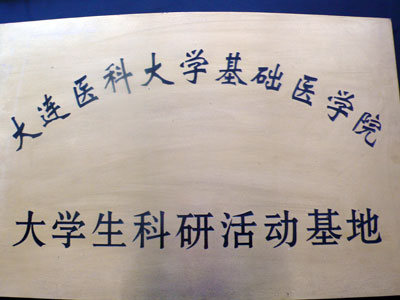 大连医科大学基础医学院
大学生科研活动基地